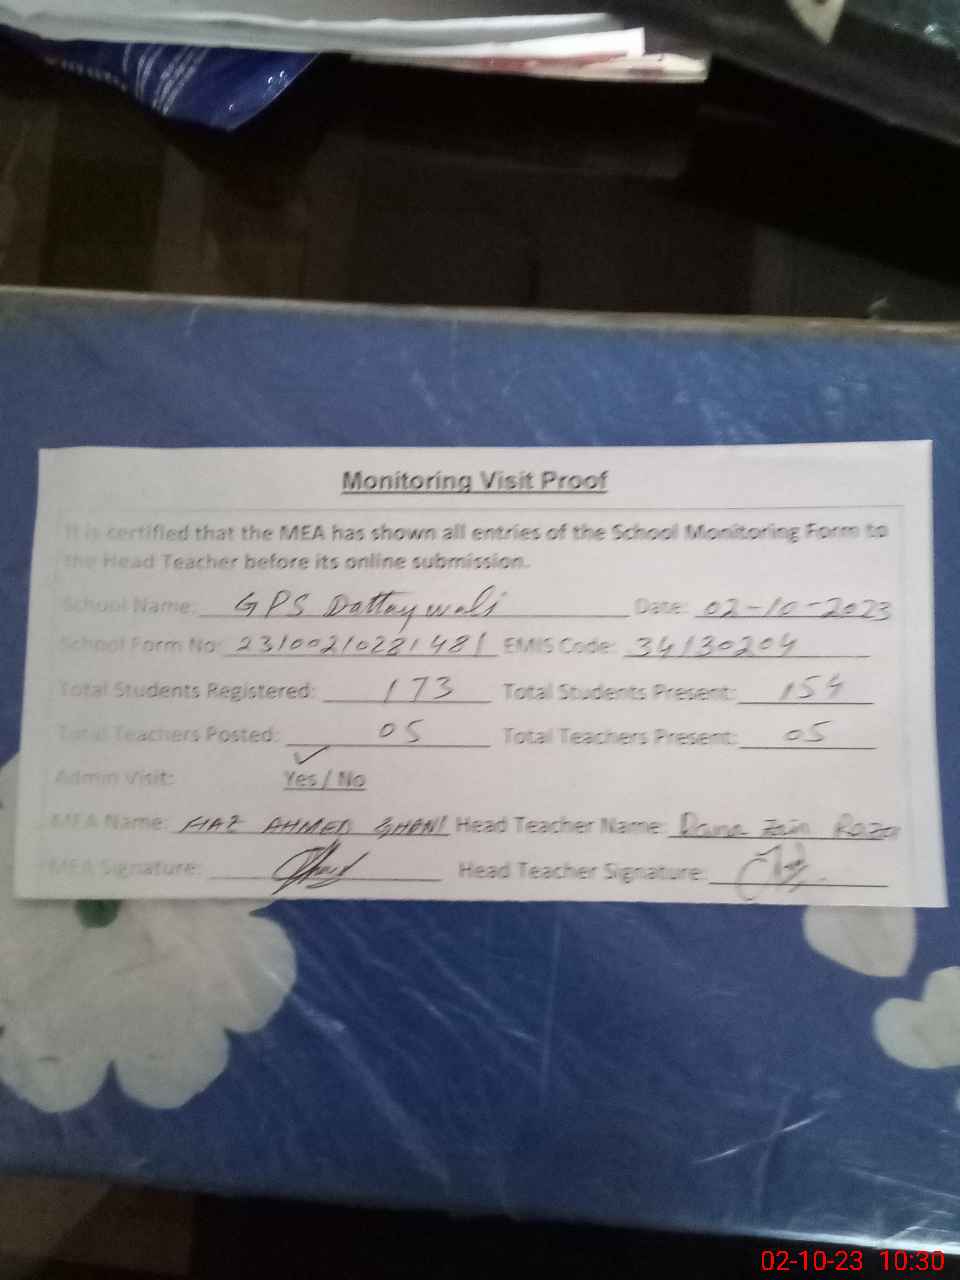 Monitoring Visit Proof
It is certified that the MEA has shown all entries of the School Monitoring Form to
the Head Teacher before its online submission.
School Name: GPS Dattaywali Date: 02-10-2023
School Form No: 23100210281481 EMIS Code: 34130204
Total Students Registered: 173 Total Students Present: 154
Total Teachers Posted: 05 Total Teachers Present: 05
Admin Visit: Yes / No
MEA Name: AHMED GHANI Head Teacher Name: Rana Zain Raza
MEA Signature: Head Teacher Signature:
02-10-23 10:30